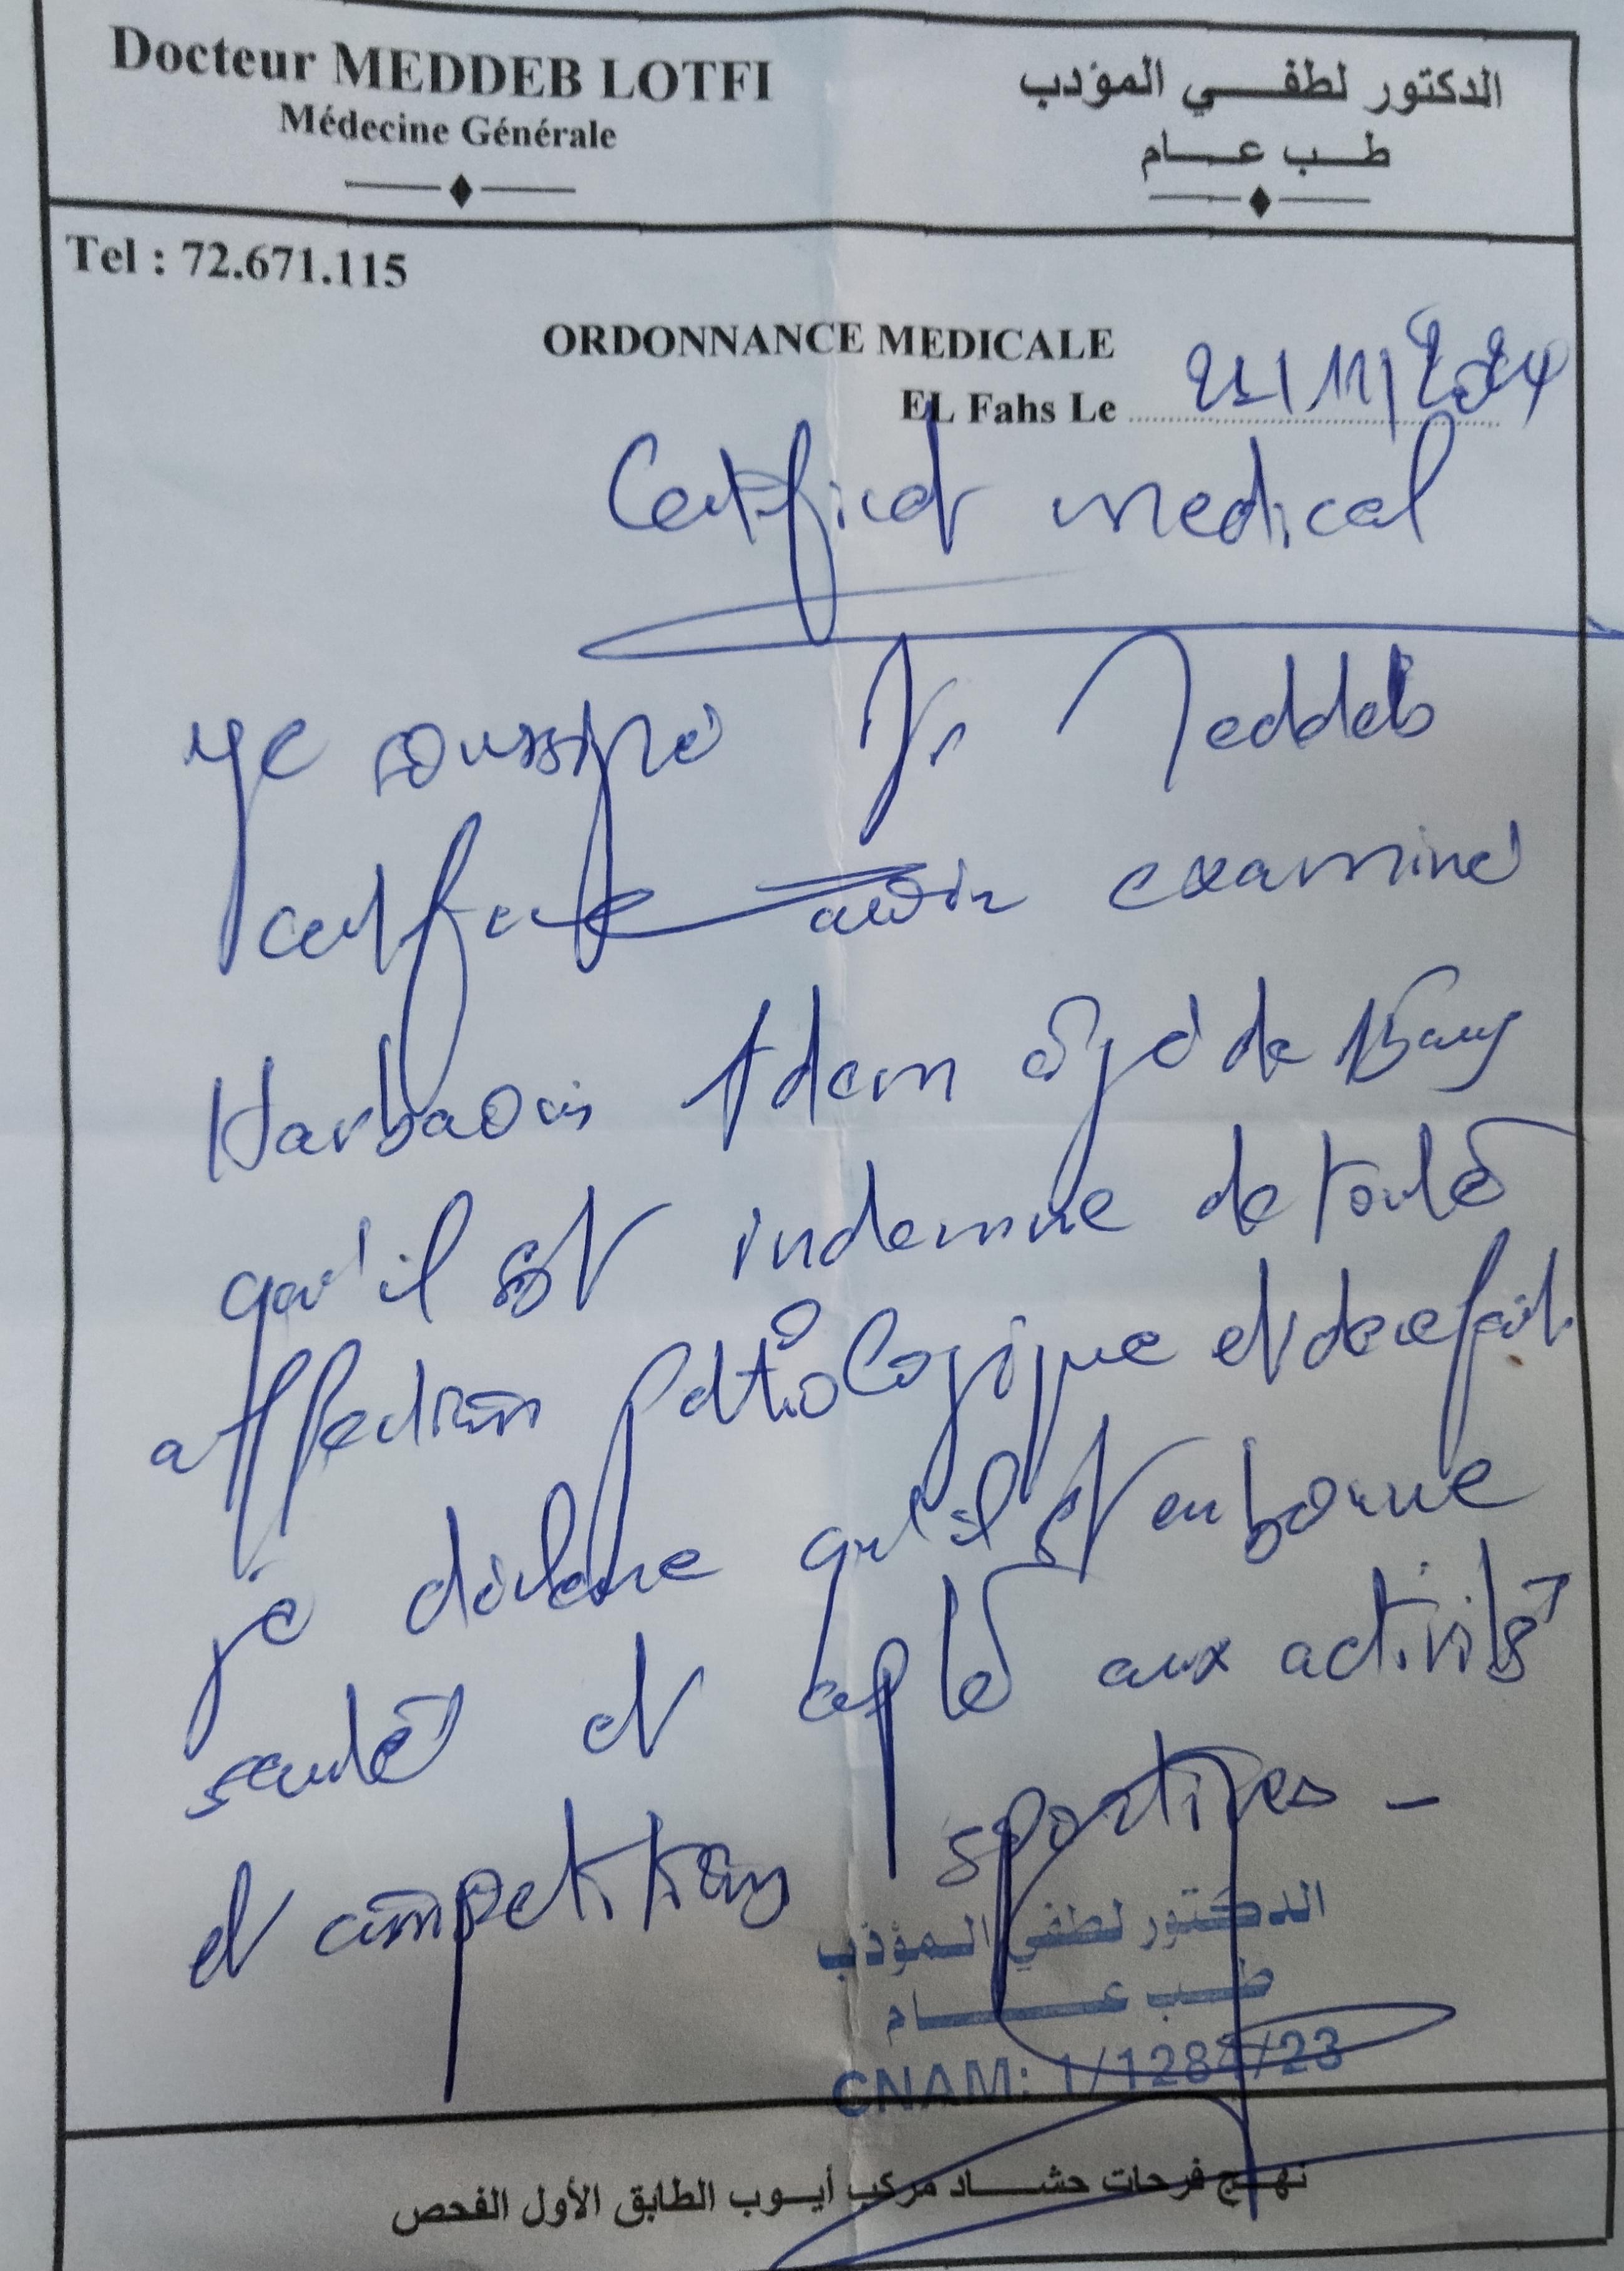 Docteur MEDDEB LOTFI
Médecine Générale
الدكتور لطفي المؤدب
طب عام
Tel : 72.671.115
ORDONNANCE MEDICALE
EL Fahs Le 25/11/2024
Certificat medical
Je soussigné Dr Meddeb
certifie avoir examiné
Harbaoui Adem âgé de 15 ans
qu'il est indemne de toute
affection pathologique et de ce fait
je déclare qu'il est en bonne
santé et apte aux activités
et compétitions sportives -
الدكتور لطفي المؤدب
طب عام
CNAM: 1/1284/23
نهج فرحات حشاد مركب أيوب الطابق الأول الفحص